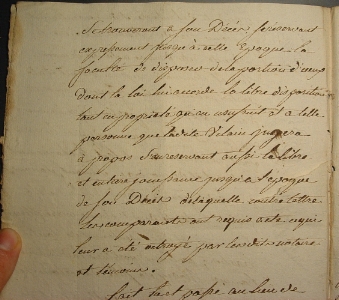 Se trouveront à son Décès se reservant
expressement jusqu'à cette Epoque la
faculté de disposer de la portion d'iceux
dont la loi lui accorde la libre disposition
tant en propriété qu'en usufruit et à telle
personne que ladite Delain jugera
à propos S'en reservant aussi la libre
et entiere jouissance jusqu'à l'epoque
de son Décès de laquelle contre lettre
Les comparants ont requis acte ce qui
leur a été octroyé par lesdits notaire
et témoins.
fait Lact passé au Lieu de